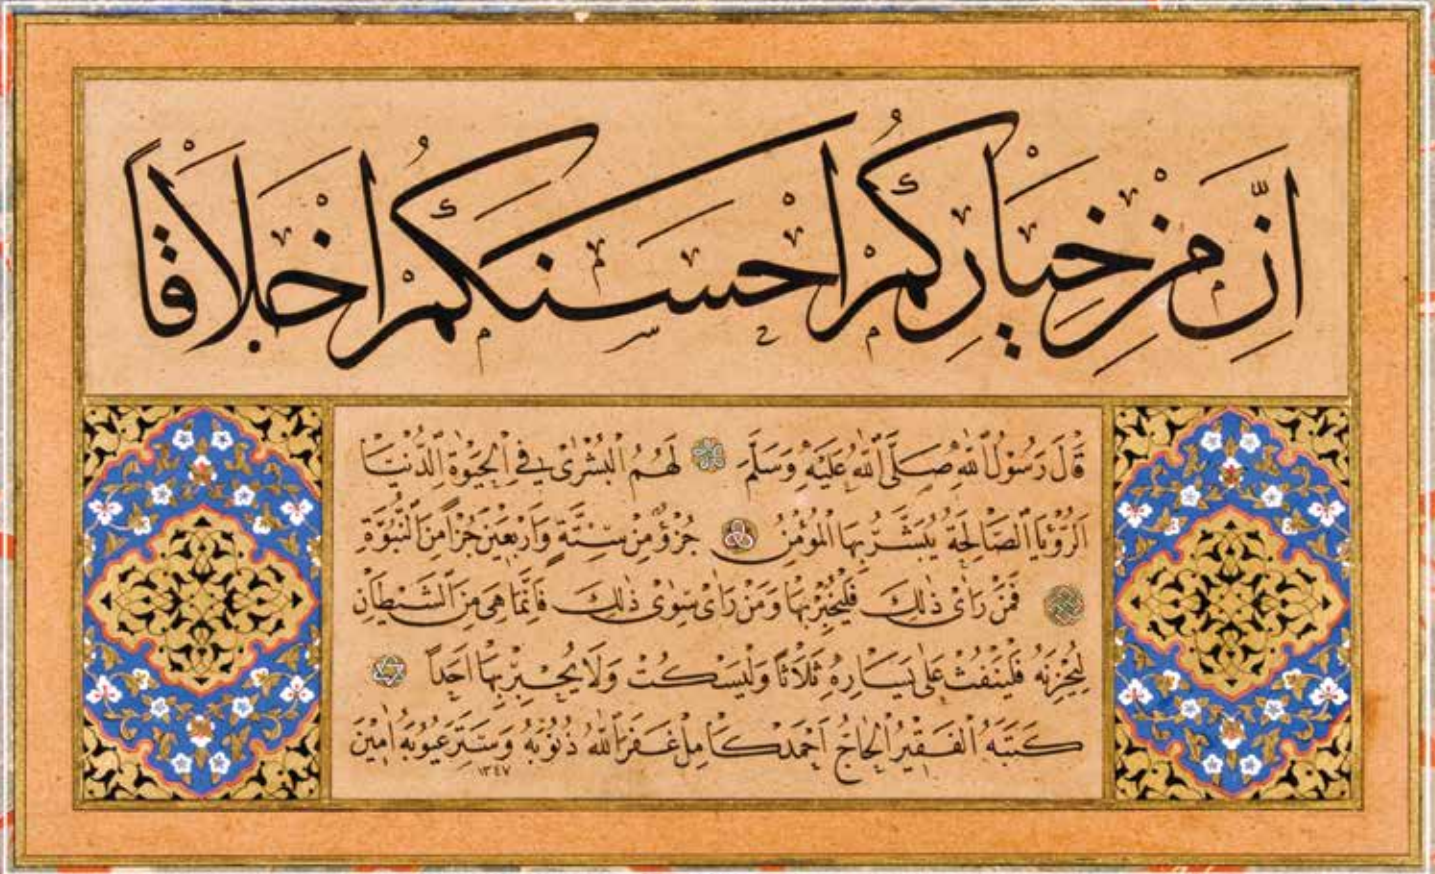 اِنَّ مِنْ خِيَارِكُمْ اَحْسَنَكُمْ اَخْلَاقًا
قَالَ رَسُولُ اللّٰهِ صَلَّى اللّٰهُ عَلَيْهِ وَسَلَّمَ لَهُمُ الْبُشْرٰى فِي الْحَيٰوةِ الدُّنْيَا
اَلرُّؤْيَا الصَّالِحَةُ يُبَشَّرُ بِهَا الْمُؤْمِنُ جُزْؤٌ مِنْ سِتَّةٍ وَاَرْبَعِينَ جُزْأً مِنَ النُّبُوَّةِ
فَمَنْ رَاٰى ذٰلِكَ فَلْيُخْبِرْ بِهَا وَمَنْ رَاٰى سِوٰى ذٰلِكَ فَاِنَّمَا هِيَ مِنَ الشَّيْطَانِ
لِيُحْزِنَهُ فَلْيَنْفُثْ عَلٰى يَسَارِهِ ثَلَاثًا وَلْيَسْكُتْ وَلَا يُخْبِرْ بِهَا اَحَدًا
كَتَبَهُ الْفَقِيرُ الْحَاجّ اَحْمَدْ كَامِلْ غَفَرَ اللّٰهُ ذُنُوبَهُ وَسَتَرَ عُيُوبَهُ اٰمِينَ
١٣٤٧